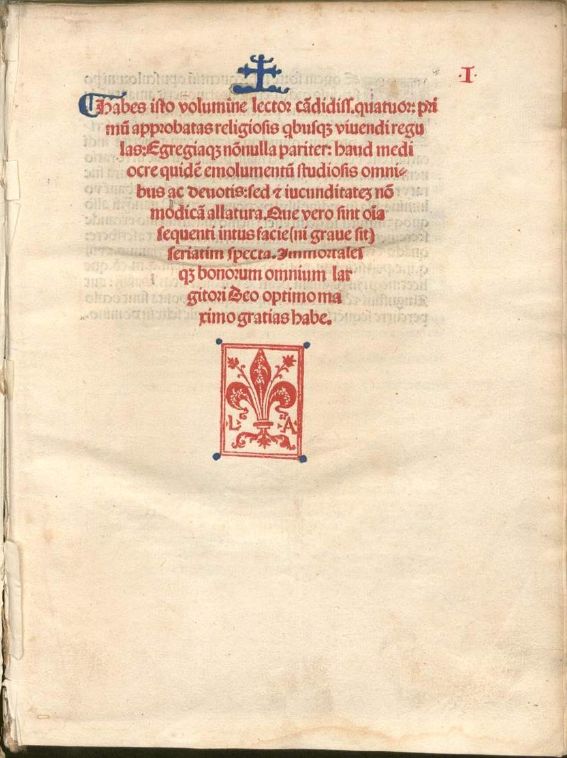 ·I·
Habes isto volumine lector cādidiss. quatuor: pri
mū approbatas religiosis qbusqꝫ viuendi regu
las: Egregiaqꝫ nōnulla pariter: haud medi
ocre quidē emolumentū studiosis omni⸗
bus ac deuotis: sed ⁊ iucunditateꝫ nō
modicā allatura. Que vero sint oīa
sequenti intus facie (ni graue sit)
seriatim specta. Immortalei
qꝫ bonorum omnium lar
gitori Deo optimo ma
ximo gratias habe.
L· ·A·